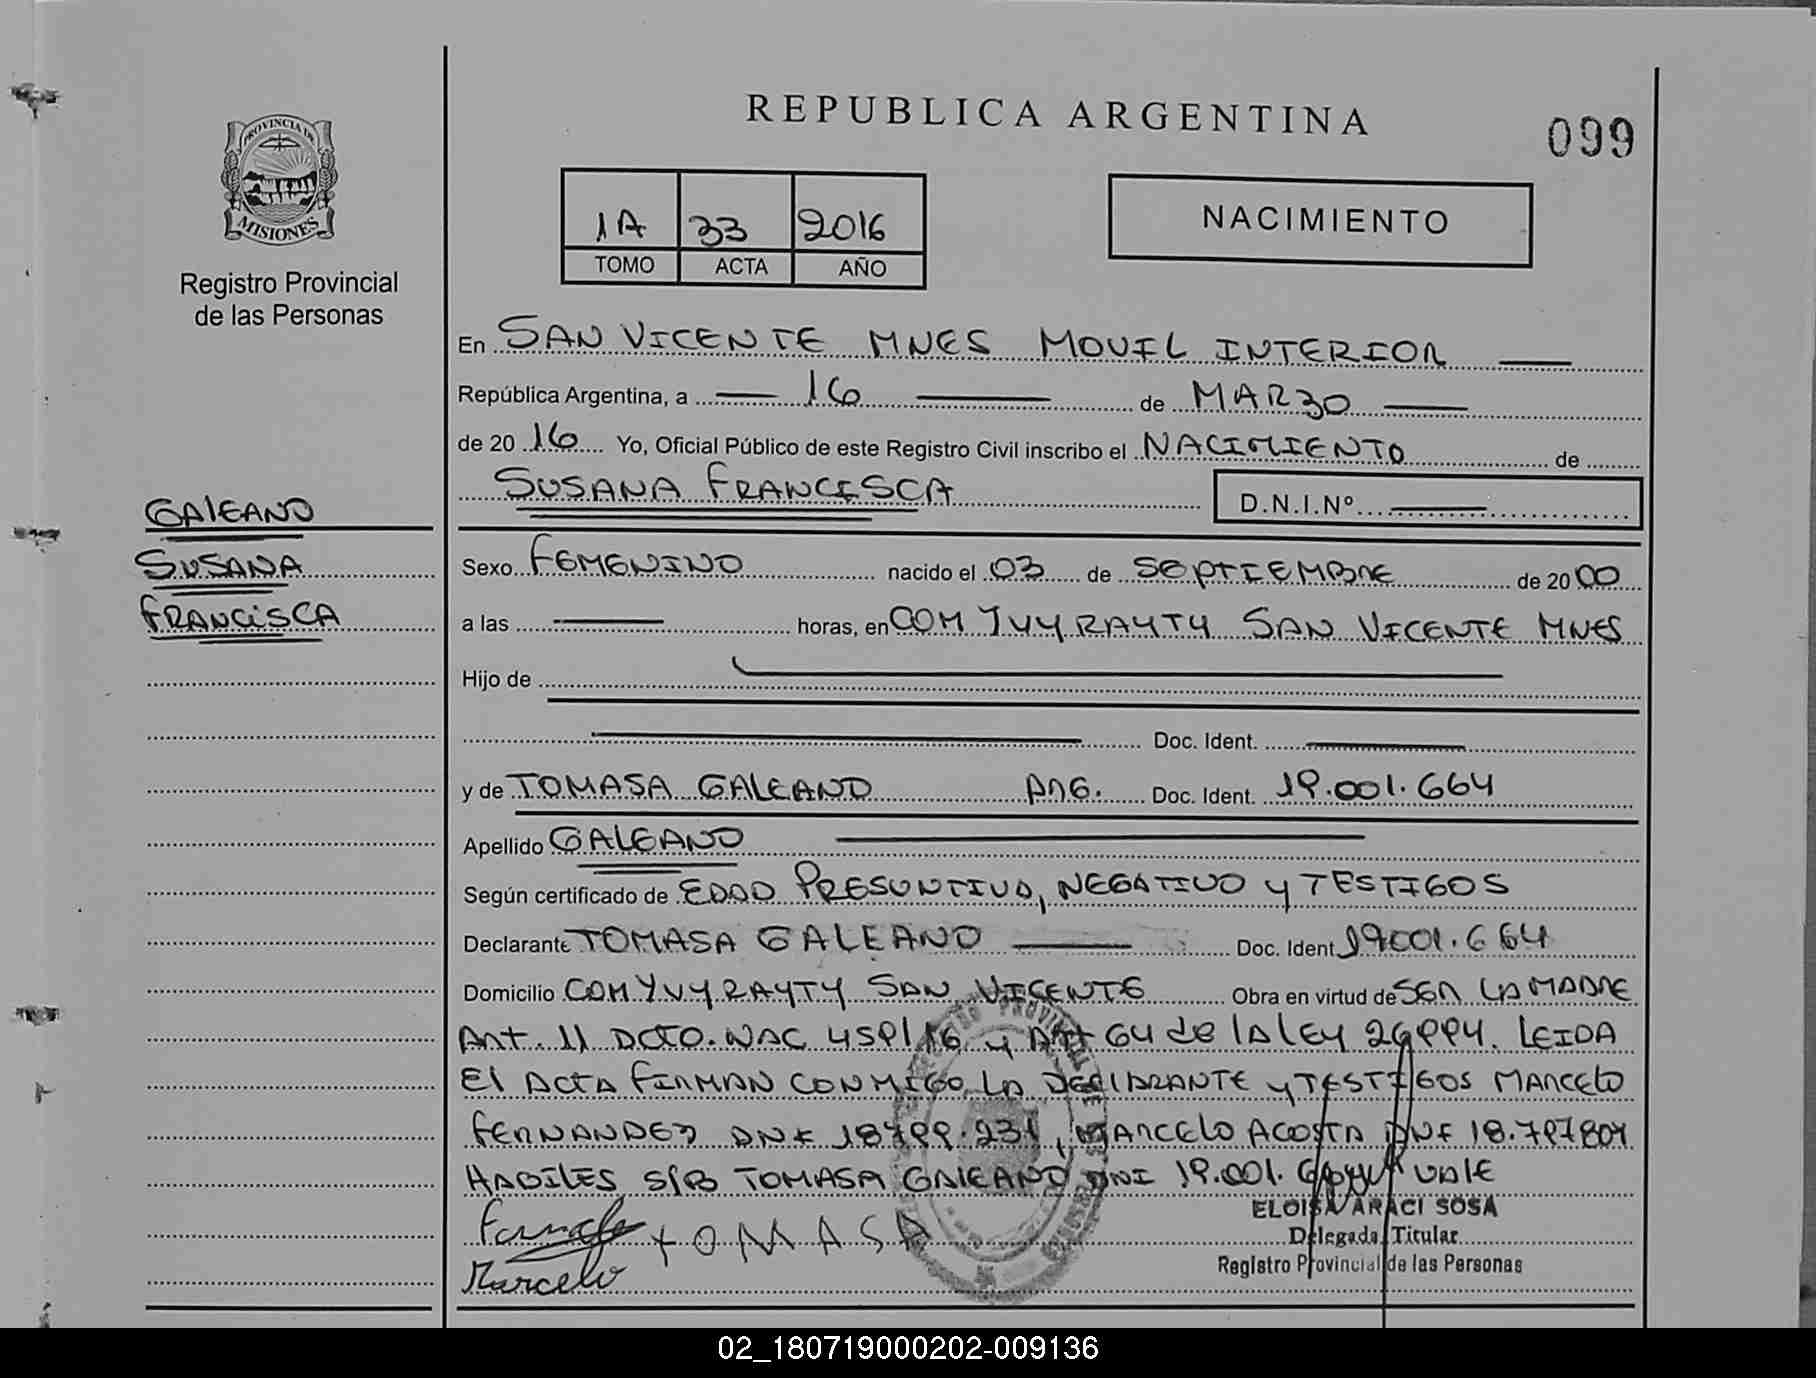 REPUBLICA ARGENTINA
099
PROVINCIA DE
MISIONES
Registro Provincial
de las Personas
1A 33 2016
TOMO ACTA AÑO
NACIMIENTO
En SAN VICENTE MNES MOVIL INTERIOR
República Argentina, a 16 de MARZO
de 20 16 Yo, Oficial Público de este Registro Civil inscribo el NACIMIENTO de
SUSANA FRANCISCA D.N.I.Nº
GALEANO
SUSANA
FRANCISCA
Sexo FEMENINO nacido el 03 de SEPTIEMBRE de 20 00
a las horas, en COM YVY RAYTY SAN VICENTE MNES
Hijo de
Doc. Ident.
y de TOMASA GALEANO ARG. Doc. Ident. 19.001.664
Apellido GALEANO
Según certificado de EDAD PRESUNTIVA, NEGATIVO y TESTIGOS
Declarante TOMASA GALEANO Doc. Ident 19001.664
Domicilio COM YVY RAYTY SAN VICENTE Obra en virtud de SER LA MADRE
ART. 11 DCTO. NAC 459/16 y ART 64 de la LEY 26994. LEIDA
El ACTA FIRMAN CONMIGO LA DECLARANTE y TESTIGOS MARCELO
FERNANDEZ DNI 18799.231, MARCELO ACOSTA DNI 18.797804
HABILES S/R TOMASA GALEANO DNI 19.001. VALE
TOMASA
Marcelo
ELOISA ARACI SOSA
Delegada Titular
Registro Provincial de las Personas
02_180719000202-009136